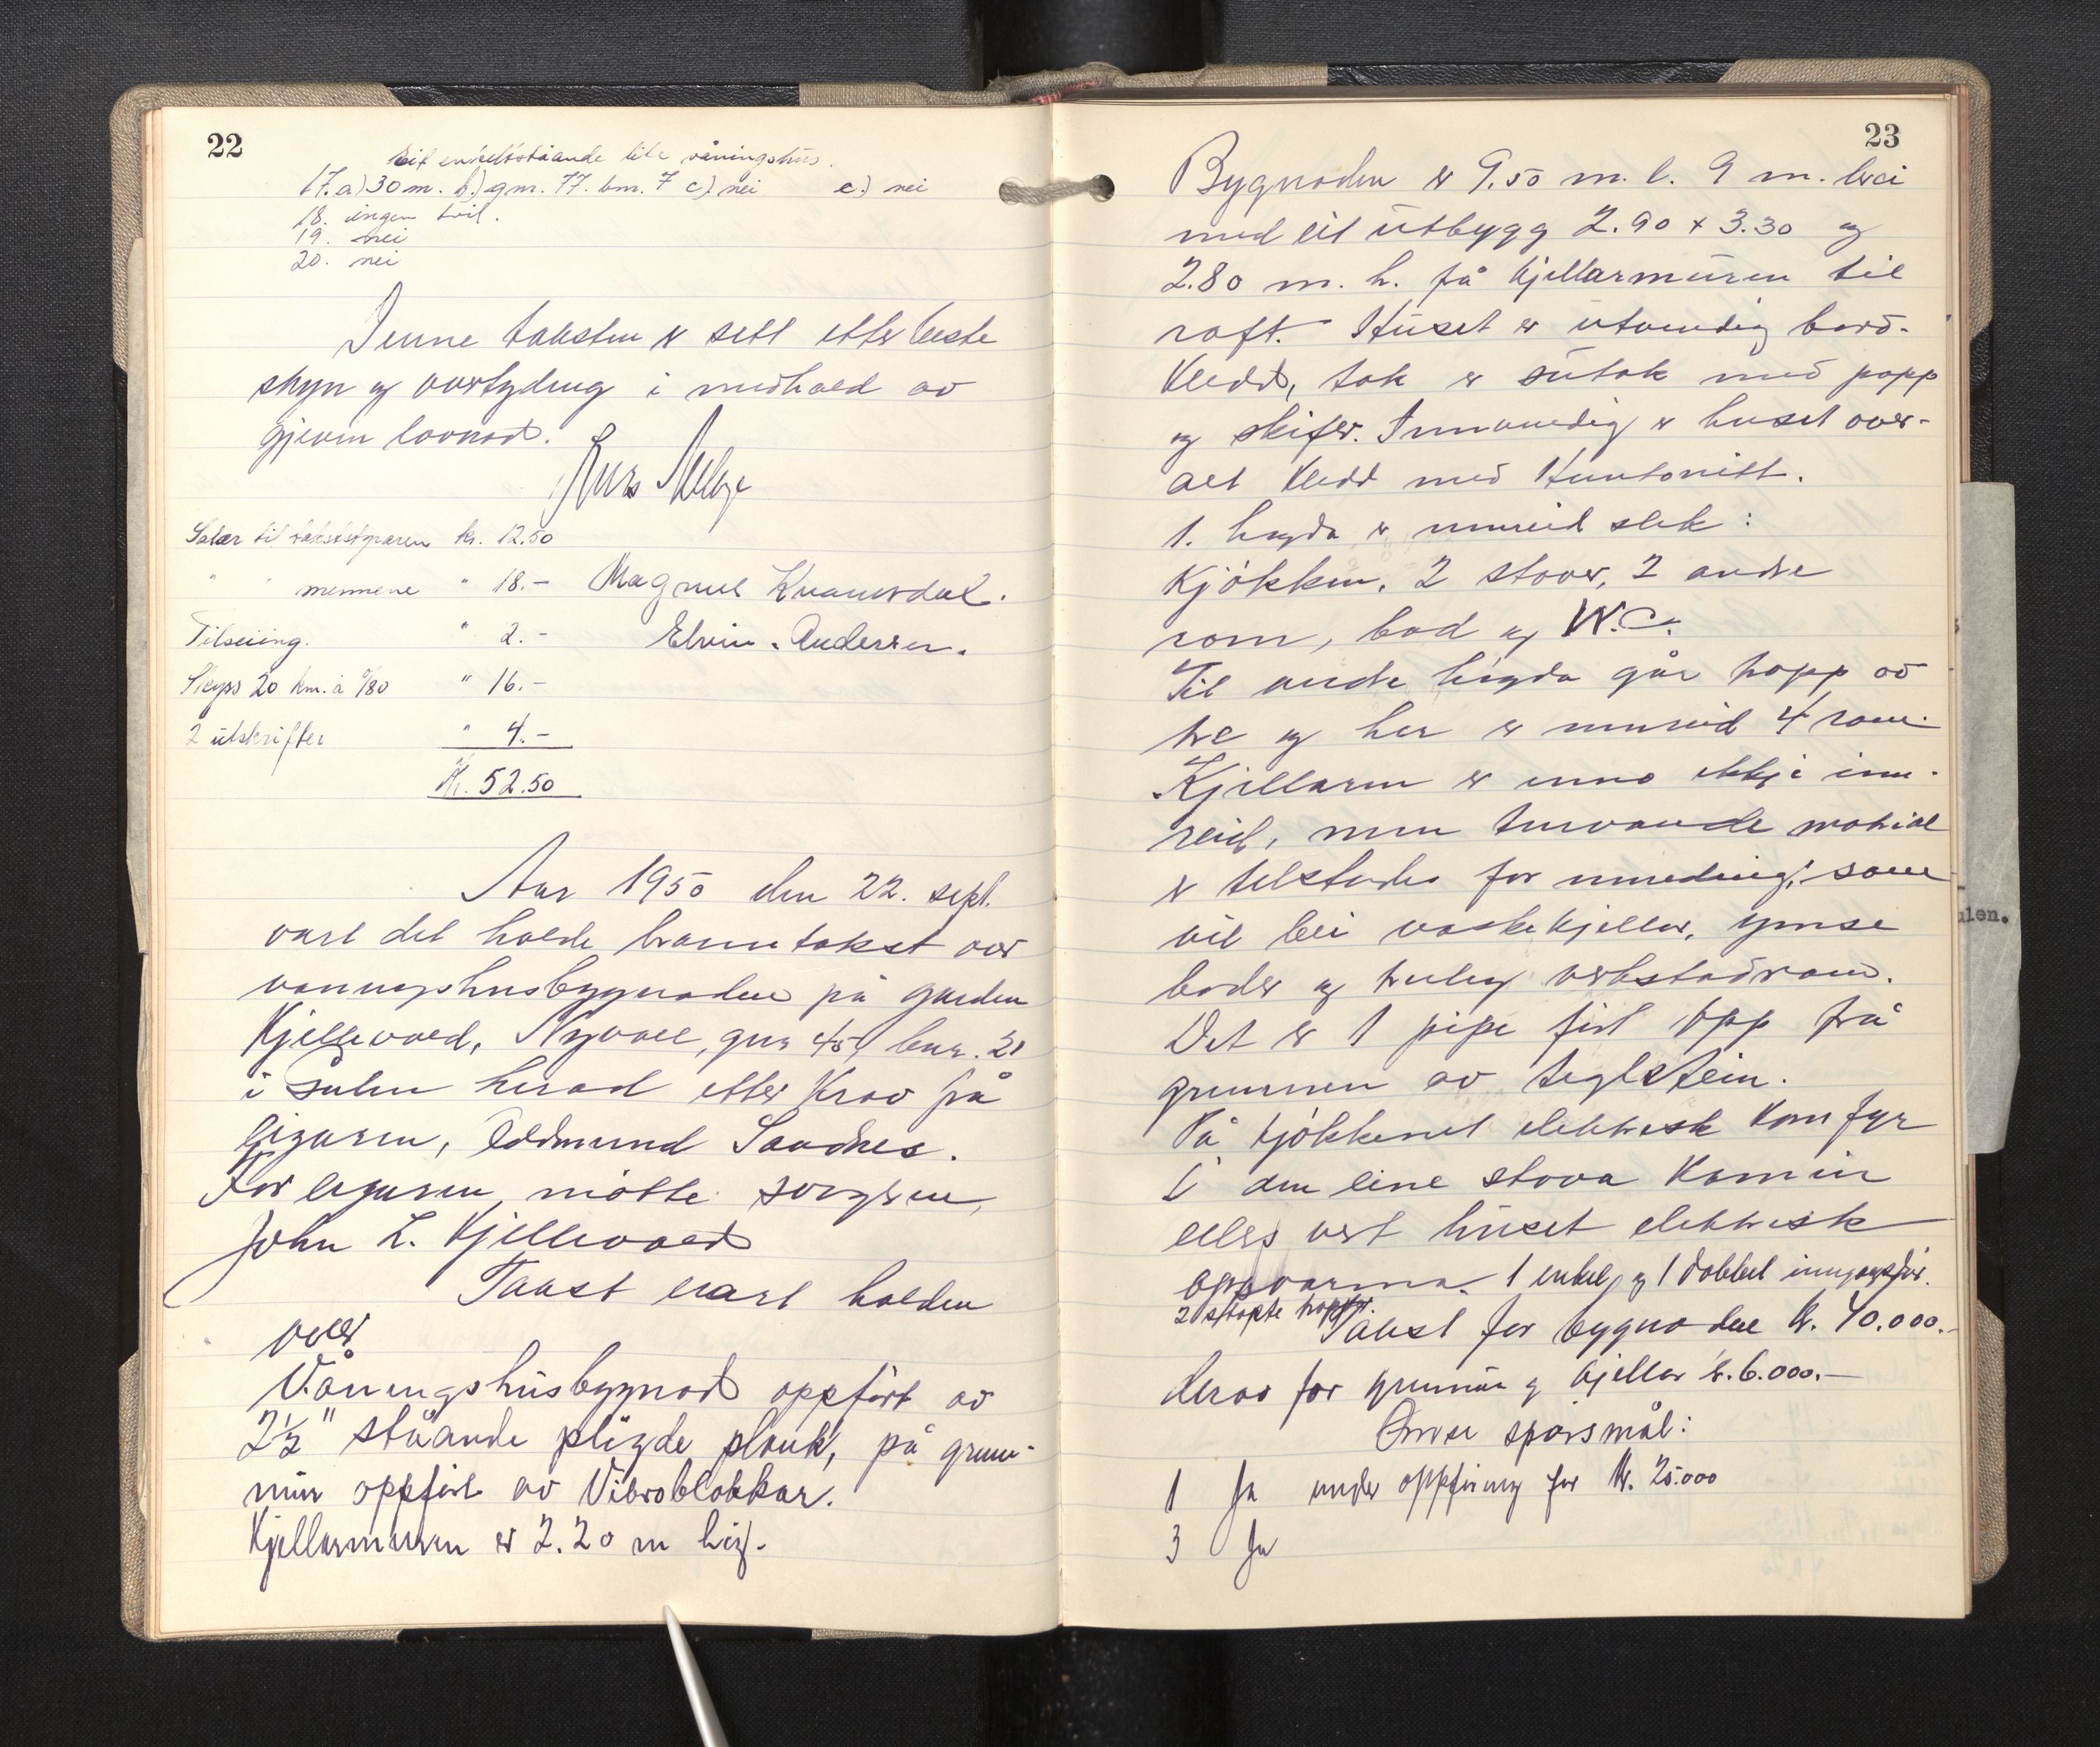 22
Eit enkeltståande lite våningshus.
17. a) 30 m. b.) gnr. 77. bnr. 7 c) nei e.) nei
18. ingen tvil.
19. nei
20. nei
Denne taksten er sett etter beste
skyn og overtyding i medhald av
gjeven lovnad.
Lars Melbye
Salær til takststyraren kr. 12.50
" " mennene " 18.- Magnus Kvamsdal.
Tilseiing. " 2.- Elvin. Andersen.
Skyss 20 km. à 0/80 " 16.-
2 utskrifter " 4.-
Kr. 52.50
Aar 1950 den 22. sept.
vart det halde branntakst over
vaningshusbygnaden på garden
Kjellevold, Nyvoll, gnr 45, bnr. 21
i Sulen herad etter krav frå
eigaren, Oddmund Sandnes.
For eigaren møtte svigeren,
John L. Kjellevold
Takst vart halden
over
Våningshusbygnad oppført av
2½" ståande pløgde plank, på grun-
mur oppført av Vibroblokkar.
Kjellarmuren er 2.20 m høg.
23
Bygnaden er 9.50 m. l. 9 m. brei
med eit utbygg 2.90 x 3.30 og
2.80 m. h. frå kjellarmuren til
raft. Huset er utvendig bord-
kledd, tak er sutak med papp
og skifer. Innvendig er huset over-
alt kledd med Huntonitt.
1. høgda er innreid slik:
Kjøkken, 2 stover, 2 andre
rom, bad og W.C.
Til andre høgda går tropp av
tre og her er innreid 4 rom.
Kjellaren er enno ikkje inn-
reid, men turvande matrial
er tilstades for innreding, som
vil bli vaskekjeller, ymse
boder og truleg verkstadrom.
Det er 1 pipe ført opp frå
grunnen av teglstein.
På kjøkkenet elektrisk komfyr
I den eine stova Kamin
elles vert huset elektrisk
oppvarma. 1 enkel og 1 dobbel inngangsdør.
2 støpte trapper.
Takst for bygnaden kr. 40.000.-
derav for grunnmur og kjellar kr. 6.000.-
Ymse spørsmål:
1 Ja under oppføring for kr. 25.000
3 Ja
ulen.